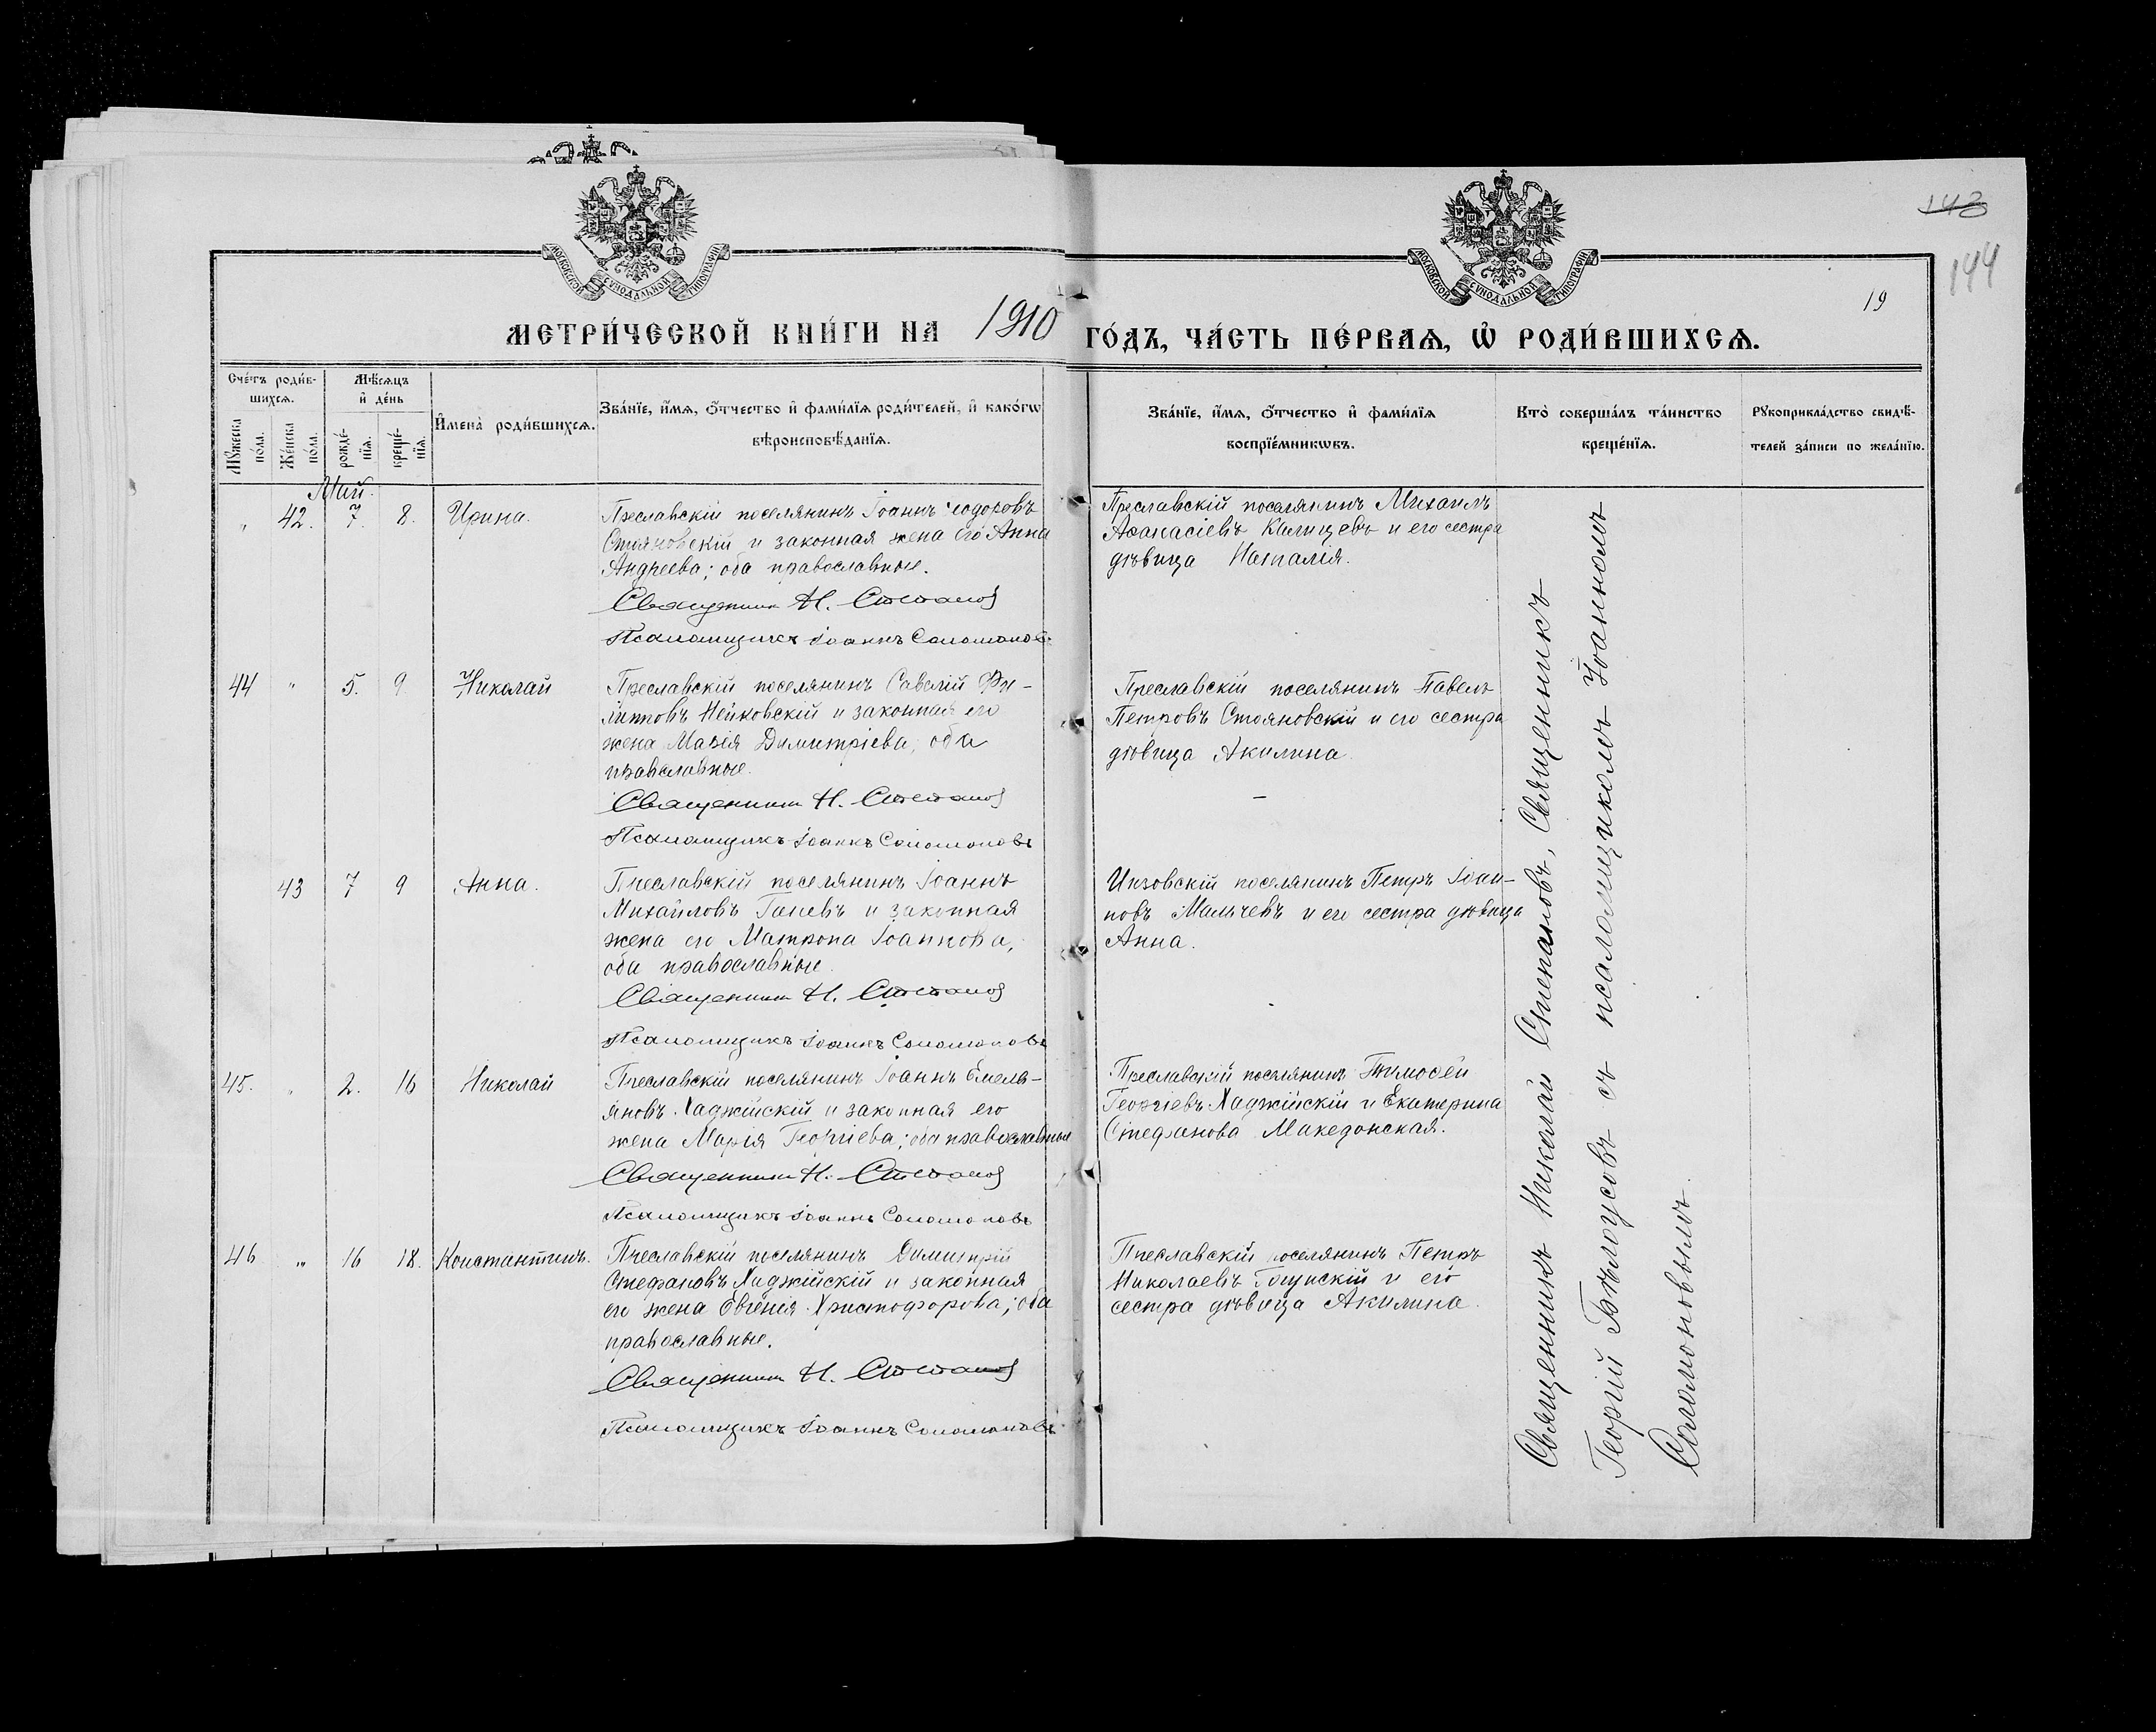 МОСКОВСКОЙ СѴНОДАЛЬНОЙ ТИПОГРАФІИ
МОСКОВСКОЙ СѴНОДАЛЬНОЙ ТИПОГРАФІИ
143
144
19
МЕТРИ́ЧЕСКОЙ КНИ́ГИ НА 1910 ГО́ДЪ, ЧА́СТЬ ПЕ́РВАѦ, Ѡ҆ РОДИ́ВШИХСѦ.
Сче́тъ роди́в-
шихсѧ.
Мꙋ́жеска
по́ла.
Же́нска
по́ла.
Мѣ́сѧцъ
и҆ де́нь
рожде́-
нїѧ.
креще́-
нїѧ.
И҆мена̀ роди́вшихсѧ.
Зва́нїе, и҆́мѧ, ѻ҆́тчество и҆ фами́лїѧ роди́телей, и҆ како́гѡ
вѣроисповѣ́данїѧ.
Зва́нїе, и҆́мѧ, ѻ҆́тчество и҆ фами́лїѧ
воспрїе́мникѡвъ.
Кто̀ соверша́лъ та́инство
креще́нїѧ.
Рꙋкоприкла́дство свидѣ́-
телей за́писи по жела́нїю.
Май.
" 42. 7. 8. Ирина.
Преславскій поселянинъ Іоаннъ Ѳеодоровъ
Стояновскій и законная жена его Анна
Андреева; оба православные.
Священникъ Н. Степановъ
Псаломщикъ Іоаннъ Соломоновъ
Преславскій поселянинъ Михаилъ
Аѳанасіевъ Калицевъ и его сестра
дѣвица Наталія.
44 " 5. 9 Николай
Преславскій поселянинъ Савелій Фи-
липповъ Нейковскій и законная его
жена Марія Димитріева, оба
православные.
Священникъ Н. Степановъ
Псаломщикъ Іоаннъ Соломоновъ
Преславскій поселянинъ Павелъ
Петровъ Стояновскій и его сестра
дѣвица Акилина
43 7 9 Анна.
Преславскій поселянинъ Іоаннъ
Михайловъ Ганевъ и законная
жена его Матрона Іоаннова,
оба православные.
Священникъ Н. Степановъ
Псаломщикъ Іоаннъ Соломоновъ
Инзовскій поселянинъ Петръ Іоан-
новъ Мальчевъ и его сестра дѣвица
Анна.
45. " 2. 16 Николай
Преславскій поселянинъ Іоаннъ Емель-
яновъ Хаджійскій и законная его
жена Марія Георгіева; оба православные
Священникъ Н. Степановъ
Псаломщикъ Іоаннъ Соломоновъ
Преславскій поселянинъ Тимоѳей
Георгіевъ Хаджійскій и Екатерина
Стефанова Македонская.
46 " 16 18. Константинъ.
Преславскій поселянинъ Димитрій
Стефановъ Хаджійскій и законная
его жена Евгенія Христофорова; оба
православные.
Священникъ Н. Степановъ
Псаломщикъ Іоаннъ Соломоновъ
Преславскій поселянинъ Петръ
Николаевъ и его
сестра дѣвица Акилина.
Священникъ Николай Степановъ, Священникъ
Георгій Бѣлоусовъ съ псаломщикомъ Іоанномъ
Соломоновымъ.